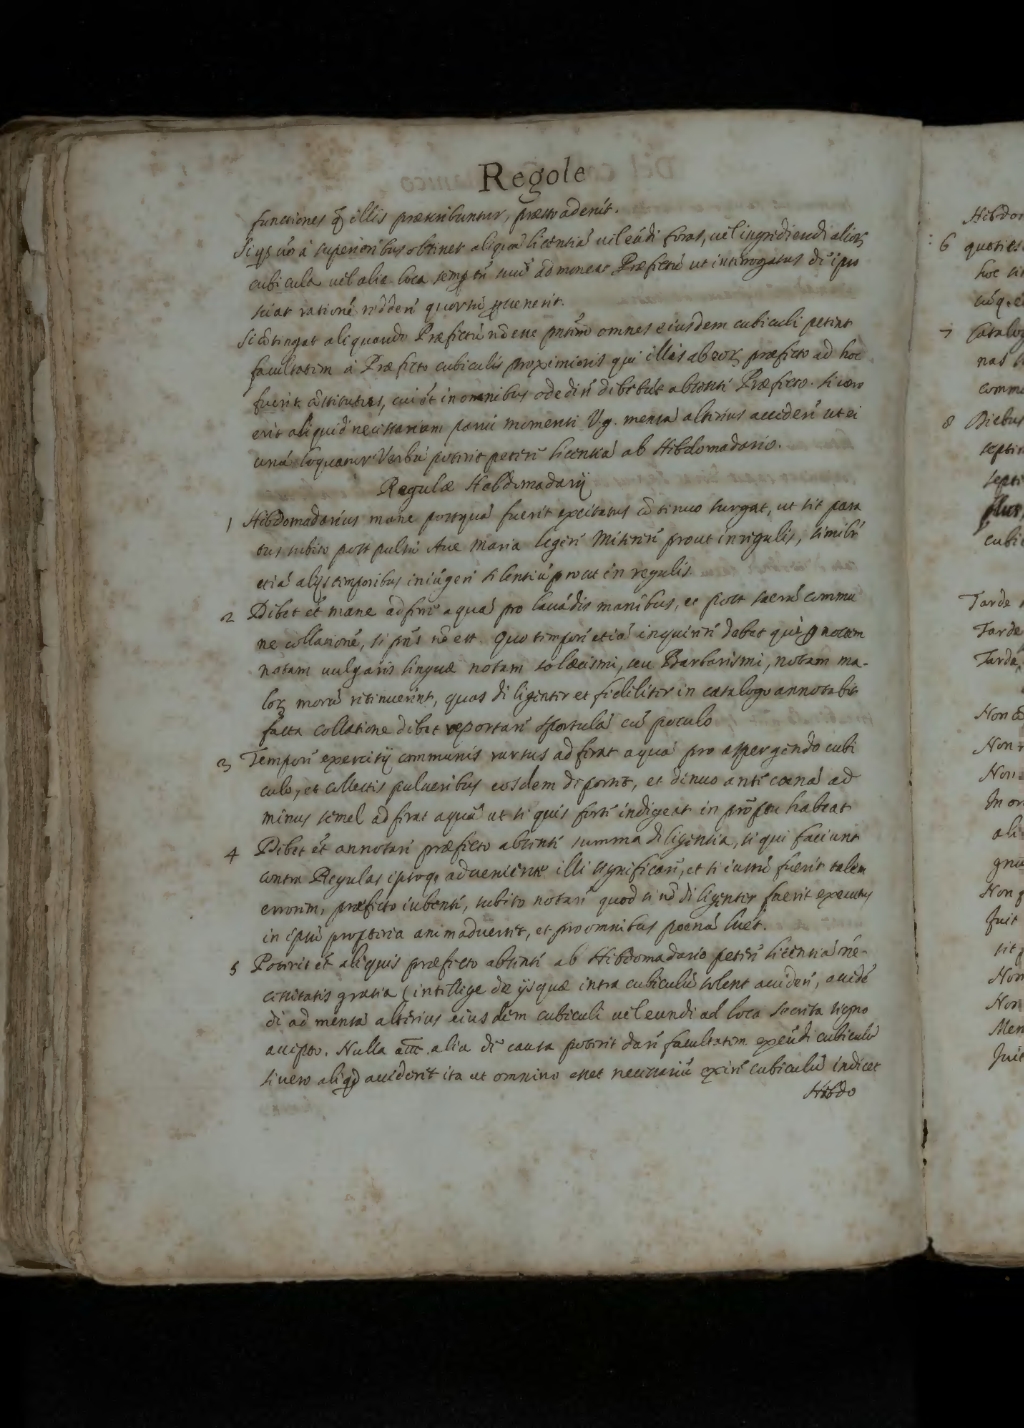 Regole
functiones q̃ illis præscribuntur, præsto aderit.
Si qs uo à superioribus obtinet aliquã licentiã uel eũdi foras, uel ingrediendi alioꝝ
cubicula uel alia loca semp tñ admoneat Præfectũ ut interrogatus de ipso
sciat rationẽ reddere quorsũ
Si cõtingat aliquando Præfectũ nõ esse omnes eiusdem cubiculi petent
facultatem à Præfecto cubiculis proximioris qui illis ab præfecto ad hoc
fuerit cõstitutus, cui et in omnibus obedire debebũt absente Præfecto. si uero
erit aliquid necessarium parui momenti V.g. mensã alterius accedere ut ei
unũ loquatur Verbũ poterit petere licentiã ab Hebdomadario.
Regulæ Hebdomadarij
1 Hebdomadarius mane postquã fuerit excitatus cõtinuo surgat, ut sit para
tus subito post pulsũ Aue Maria legere Miserere prout in regulis, similr̃
etiã alijs temporibus iniũgere silentiũ prout in regulis
2 Debet et mane adferre aquã pro lauãdis manibus, et post sacrũ commu
ne collationẽ, si est. Quo tempore etiã inquirere debet qui notam
notam uulgaris linguæ notam solæcismi, seu Barbarismi, notam ma-
loꝝ morũ retinuerint, quos diligenter et fideliter in catalogo annotabit
facta collatione debet reportare sportulã cũ poculo
3 Tempore exercitij communis rursus adferat aquã pro aspergendo cubi
culo, et collectis pulueribus eosdem deportet, et denuo ante cœnã ad
minus semel adferat aquã ut si quis forte indigeat in prõptu habeat
4 Debet et annotare præfecto absente summa diligentia, si qui faciunt
contra Regulas ipsoq. adueniẽte illi significare, et si iussũ fuerit talem
errorem, præfecto iubente, subito notare quod si nõ diligenter fuerit executus
in ipsũ prefectus animaduertet, et pro omnibus pœnã luet.
5 Poterit et aliquis præfecto absente ab Hebdomadario petere licentiã ne-
cessitatis gratia (intellige de ijs quæ intra cubiculũ solent accidere, accedẽ
di ad mensã alterius eiusdem cubiculi uel eundi ad loca secreta signo
accepto. Nulla aũt alia de causa poterit dare facultatem exeũdi cubiculũ
si uero aliqd acciderit ita ut omnino esset necessariũ exire cubiculũ indicet
Hebdo
6 quoties
7 Catalog
8 Diebus
septi
cubic
Tarde
Tarde
Tarde
Non
Non
Non
In
ali
Non
fuit
Non
Non
fuit